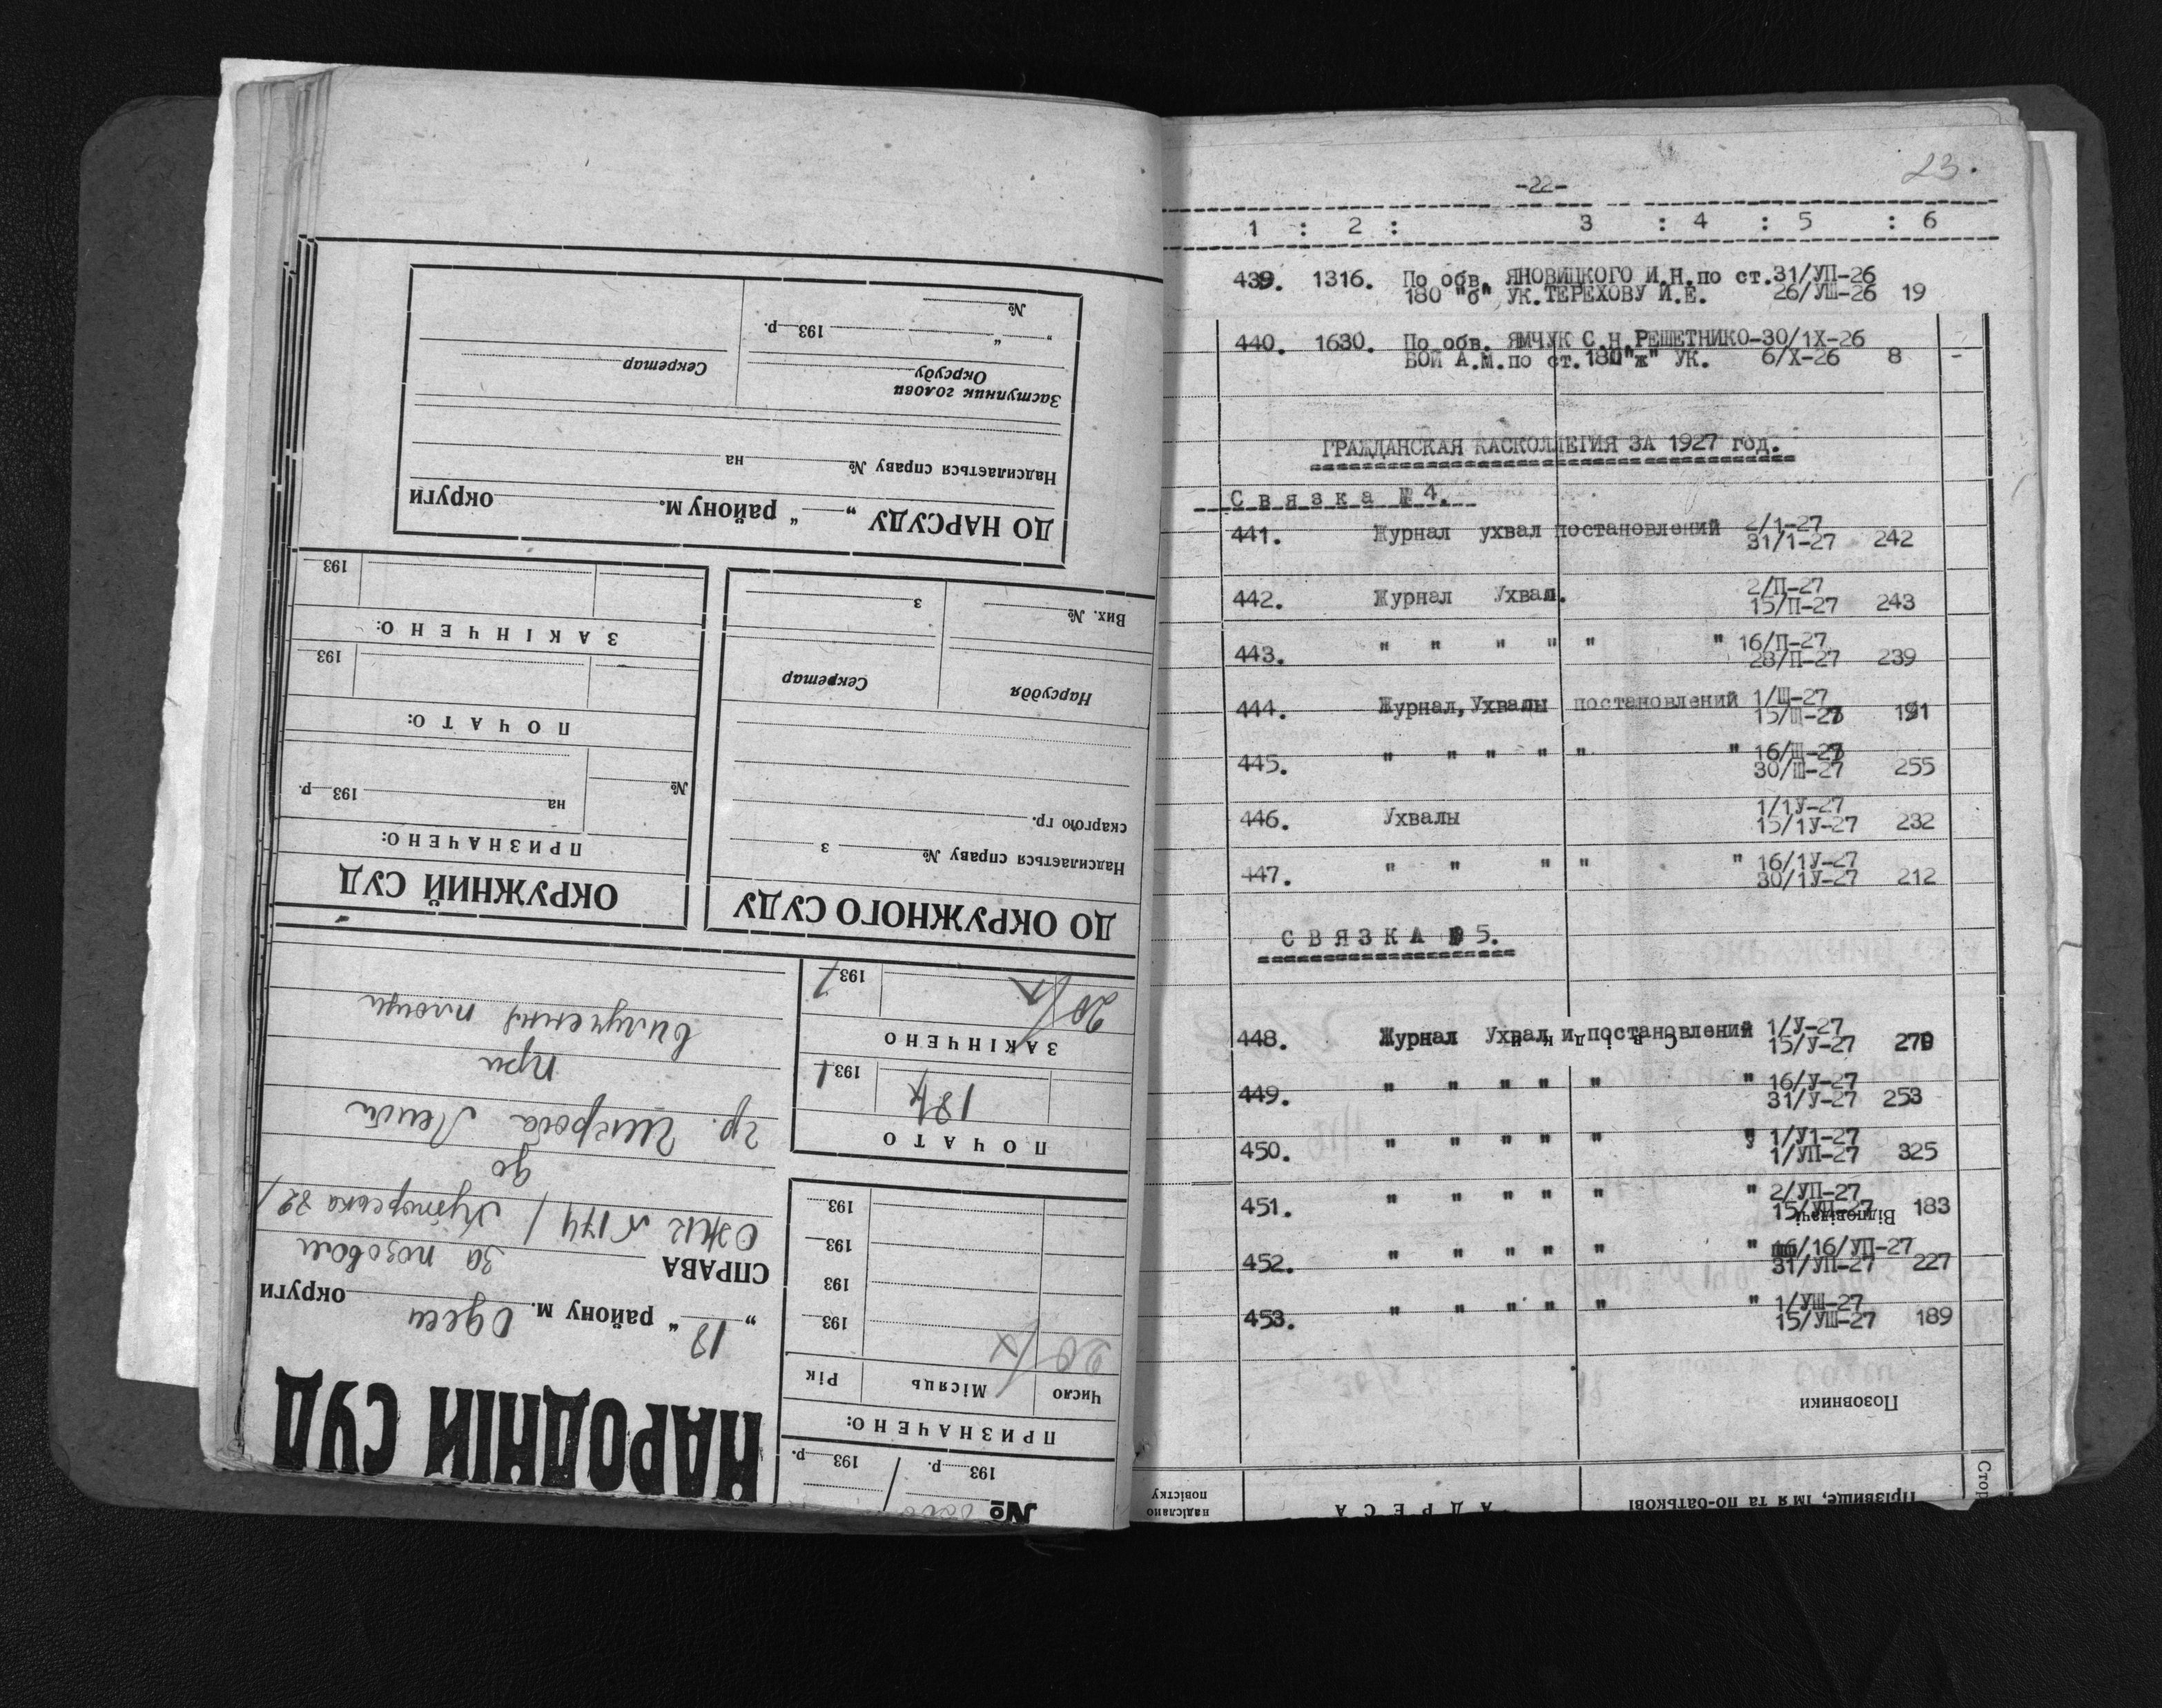 НАРОДНІЙ СУД
18 „ “ району м. Одеси округи
СПРАВА за позовом
ОЖК № 174 /
до
гр.
при
вилученні площи
№
193 р. 193 р.
ПРИЗНАЧЕНО:
Число Місяць Рік
20/X 193
193
193
193
ПОЧАТО
18/X 1931
ЗАКІНЧЕНО
20/X 1931
ДО ОКРУЖНОГО СУДУ
Надсилається справу № з
скаргою гр.
Нарсуддя Секретар
Вих. №
з
ОКРУЖНИЙ СУД
ПРИЗНАЧЕНО:
№ на 193 р.
ПОЧАТО:
193
ЗАКІНЧЕНО:
193
ДО НАРСУДУ „ “ району м. округи
Надсилається справу № на
Заступник голови
Окрсуду
Секретар
„ “ 193 р.
№
23.
-22-
1 : 2 : 3 : 4 : 5 : 6
439. 1316. По обв. ЯНОВИЦКОГО И.Н.по ст.31/УП-26
180 "б" УК.ТЕРЕХОВУ И.Е. 26/УШ-26 19
440. 1630. По обв. ЯМЧУК С.Н.РЕШЕТНИКО-30/1Х-26
БОЙ А.М.по ст.180"ж" УК. 6/Х-26 8 -
ГРАЖДАНСКАЯ КАСКОЛЛЕГИЯ ЗА 1927 год.
Связка № 4.
441. Журнал ухвал постановлений 2/1-27
31/1-27 242
442. Журнал Ухвал. 2/П-27
15/П-27 243
443. " " " " " " 16/П-27
28/П-27 239
444. Журнал,Ухвалы постановлений 1/Ш-27
15/Ш-27 191
445. " " " " " " 16/Ш-27
30/Ш-27 255
446. Ухвалы 1/1У-27
15/1У-27 232
447. " " " " " 16/1У-27
30/1У-27 212
СВЯЗКА № 5.
448. Журнал Ухвал и постановлений 1/У-27
15/У-27 270
Свідки
449. " " " " " " 16/У-27
31/У-27 253
450. " " " " " " 1/У1-27
1/УП-27 325
451. " " " " " " 2/УП-27
15/УП-27 183
Відповідачі
452. " " " " " " 16/16/УП-27
31/УП-27 227
453. " " " " " " 1/УШ-27
15/УШ-27 189
Позовники
Прізвище, ім'я та по-батькові АДРЕСА надіслано
повістку
Стор